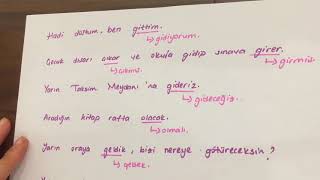 Hadi dostum, ben gittim.
↳ gidiyorum.
Çocuk dışarı çıkar ve okula gidip sınava girer.
↳ çıkmış ↳ girmiş
Yarın Taksim Meydanı'na gideriz.
↳ gideceğiz.
Aradığın kitap rafta olacak.
↳ olmalı.
Yarın oraya geldik, bizi nereye götüreceksin?
↳ gelsek.